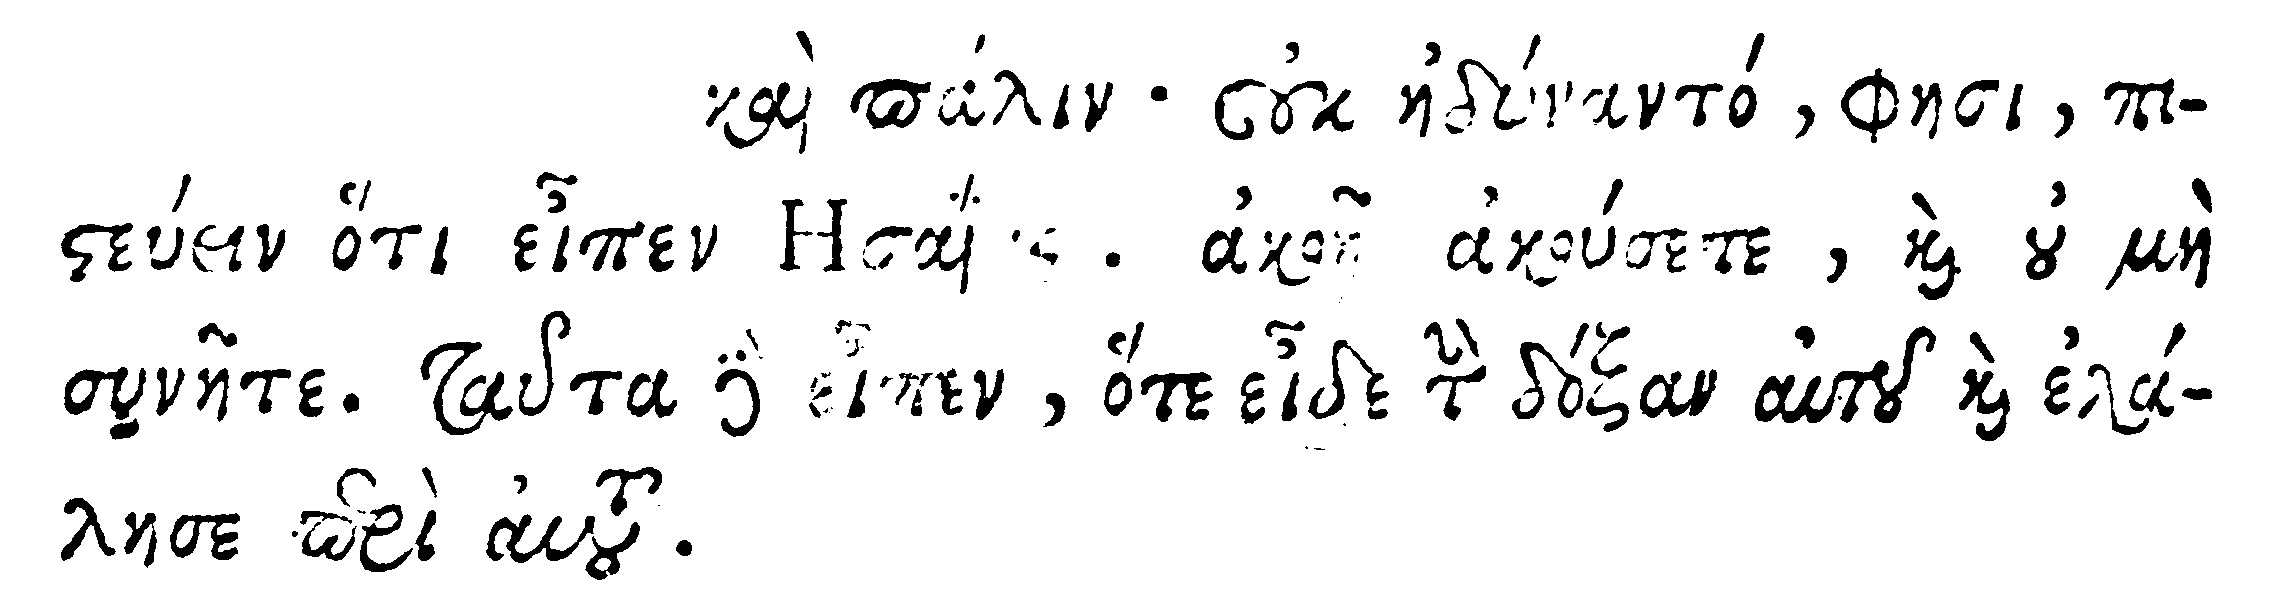 καὶ πάλιν· οὐκ ἠδύναντό, φησι, πι-
στεύειν ὅτι εἶπεν Ησαΐας. ἀκοῇ ἀκούσετε, καὶ οὐ μὴ
συνῆτε. Ταῦτα δὲ εἶπεν, ὅτε εἶδε τὴν δόξαν αὐτοῦ καὶ ἐλά-
λησε περὶ αὐτοῦ.